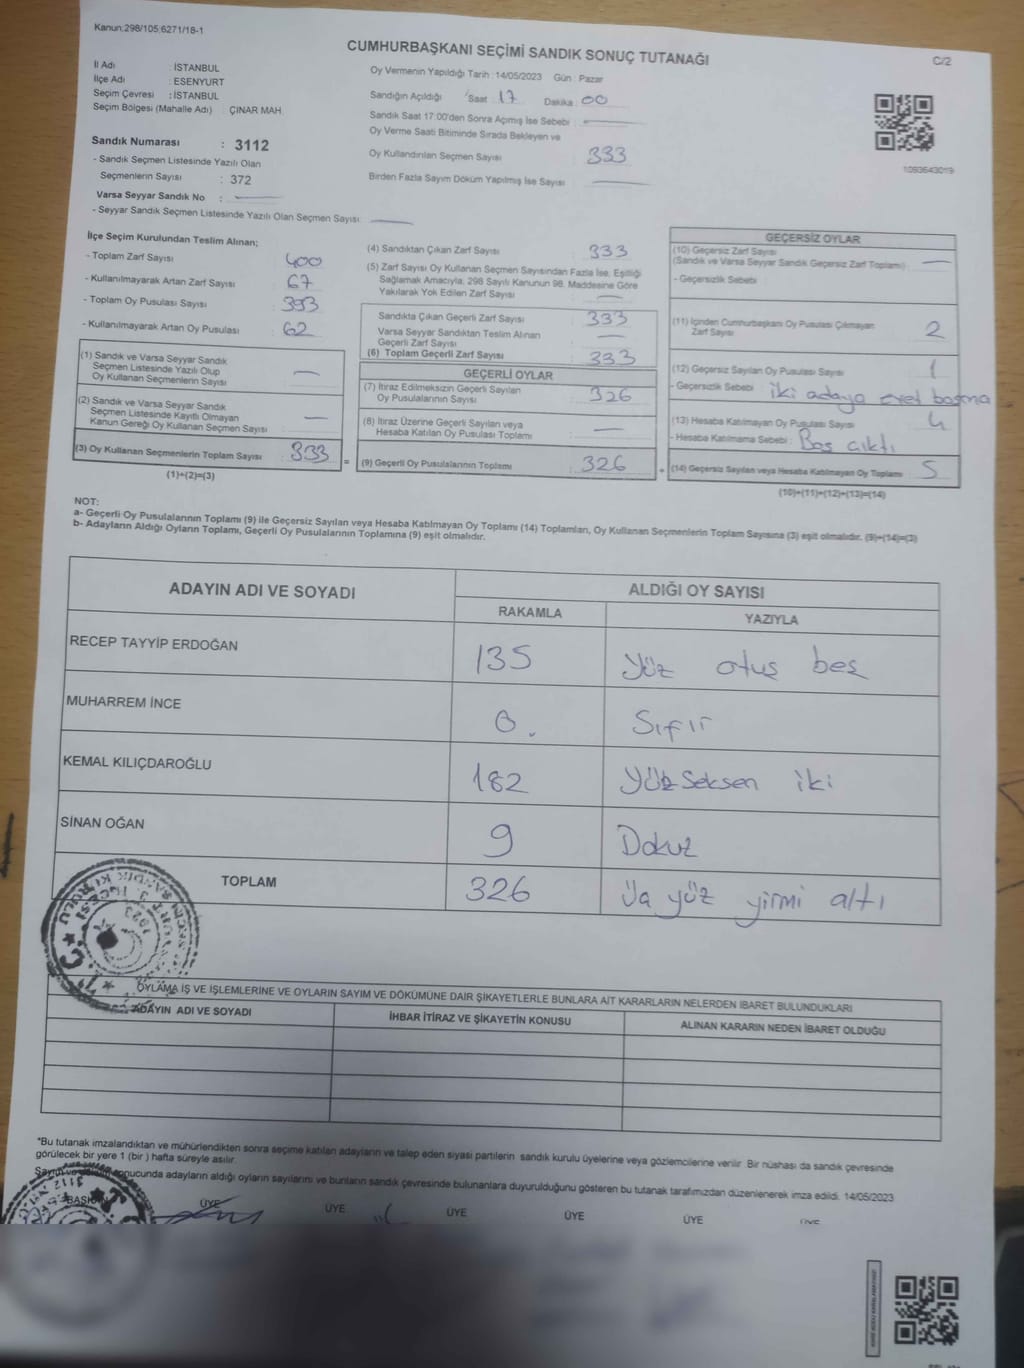 Kanun:298/105;6271/18-1
CUMHURBAŞKANI SEÇİMİ SANDIK SONUÇ TUTANAĞI
C/2
İl Adı : İSTANBUL
İlçe Adı : ESENYURT
Seçim Çevresi : İSTANBUL
Seçim Bölgesi (Mahalle Adı) : ÇINAR MAH.
Oy Vermenin Yapıldığı Tarih : 14/05/2023 Gün : Pazar
Sandığın Açıldığı Saat : 17 Dakika : 00
Sandık Saat 17:00'den Sonra Açımış İse Sebebi :
Oy Verme Saati Bitiminde Sırada Bekleyen ve
Oy Kullandırılan Seçmen Sayısı : 333
Birden Fazla Sayım Döküm Yapılmış İse Sayısı :
1093643019
Sandık Numarası : 3112
- Sandık Seçmen Listesinde Yazılı Olan
Seçmenlerin Sayısı : 372
Varsa Seyyar Sandık No :
- Seyyar Sandık Seçmen Listesinde Yazılı Olan Seçmen Sayısı:
İlçe Seçim Kurulundan Teslim Alınan;
- Toplam Zarf Sayısı : 400
- Kullanılmayarak Artan Zarf Sayısı : 67
- Toplam Oy Pusulası Sayısı : 393
- Kullanılmayarak Artan Oy Pusulası : 62
(1) Sandık ve Varsa Seyyar Sandık
Seçmen Listesinde Yazılı Olup
Oy Kullanan Seçmenlerin Sayısı
(2) Sandık ve Varsa Seyyar Sandık
Seçmen Listesinde Kayıtlı Olmayan
Kanun Gereği Oy Kullanan Seçmen Sayısı :
(3) Oy Kullanan Seçmenlerin Toplam Sayısı : 333
(1)+(2)=(3)
(4) Sandıktan Çıkan Zarf Sayısı : 333
(5) Zarf Sayısı Oy Kullanan Seçmen Sayısından Fazla İse, Eşitliği
Sağlamak Amacıyla, 298 Sayılı Kanunun 98. Maddesine Göre
Yakılarak Yok Edilen Zarf Sayısı :
Sandıkta Çıkan Geçerli Zarf Sayısı : 333
Varsa Seyyar Sandıktan Teslim Alınan
Geçerli Zarf Sayısı :
(6) Toplam Geçerli Zarf Sayısı : 333
GEÇERLİ OYLAR
(7) İtiraz Edilmeksizin Geçerli Sayılan
Oy Pusulalarının Sayısı : 326
(8) İtiraz Üzerine Geçerli Sayılan veya
Hesaba Katılan Oy Pusulası Toplamı :
(9) Geçerli Oy Pusulalarının Toplamı : 326
GEÇERSİZ OYLAR
(10) Geçersiz Zarf Sayısı
(Sandık ve Varsa Seyyar Sandık Geçersiz Zarf Toplamı) :
- Geçersizlik Sebebi :
(11) İçinden Cumhurbaşkanı Oy Pusulası Çıkmayan
Zarf Sayısı : 2
(12) Geçersiz Sayılan Oy Pusulası Sayısı : 1
- Geçersizlik Sebebi : iki adaya evet basma
(13) Hesaba Katılmayan Oy Pusulası Sayısı : 4
- Hesaba Katılmama Sebebi : Boş çıktı
(14) Geçersiz Sayılan veya Hesaba Katılmayan Oy Toplamı : 5
(10)+(11)+(12)+(13)=(14)
NOT:
a- Geçerli Oy Pusulalarının Toplamı (9) ile Geçersiz Sayılan veya Hesaba Katılmayan Oy Toplamı (14) Toplamları, Oy Kullanan Seçmenlerin Toplam Sayısına (3) eşit olmalıdır. (9)+(14)=(3)
b- Adayların Aldığı Oyların Toplamı, Geçerli Oy Pusulalarının Toplamına (9) eşit olmalıdır.
ADAYIN ADI VE SOYADI
ALDIĞI OY SAYISI
RAKAMLA YAZIYLA
RECEP TAYYİP ERDOĞAN 135 Yüz otuz beş
MUHARREM İNCE 0. Sıfır
KEMAL KILIÇDAROĞLU 182 Yüz Seksen iki
SİNAN OĞAN 9 Dokuz
TOPLAM 326 yüz yirmi altı
OYLAMA İŞ VE İŞLEMLERİNE VE OYLARIN SAYIM VE DÖKÜMÜNE DAİR ŞİKAYETLERLE BUNLARA AİT KARARLARIN NELERDEN İBARET BULUNDUKLARI
ADAYIN ADI VE SOYADI
İHBAR İTİRAZ VE ŞİKAYETİN KONUSU
ALINAN KARARIN NEDEN İBARET OLDUĞU
*Bu tutanak imzalandıktan ve mühürlendikten sonra seçime katılan adayların ve talep eden siyasi partilerin sandık kurulu üyelerine veya gözlemcilerine verilir. Bir nüshası da sandık çevresinde
görülecek bir yere 1 (bir ) hafta süreyle asılır.
sonucunda adayların aldığı oyların sayılarını ve bunların sandık çevresinde bulunanlara duyurulduğunu gösteren bu tutanak tarafımızdan düzenlenerek imza edildi. 14/05/2023
BAŞKAN ÜYE ÜYE ÜYE ÜYE ÜYE ÜYE